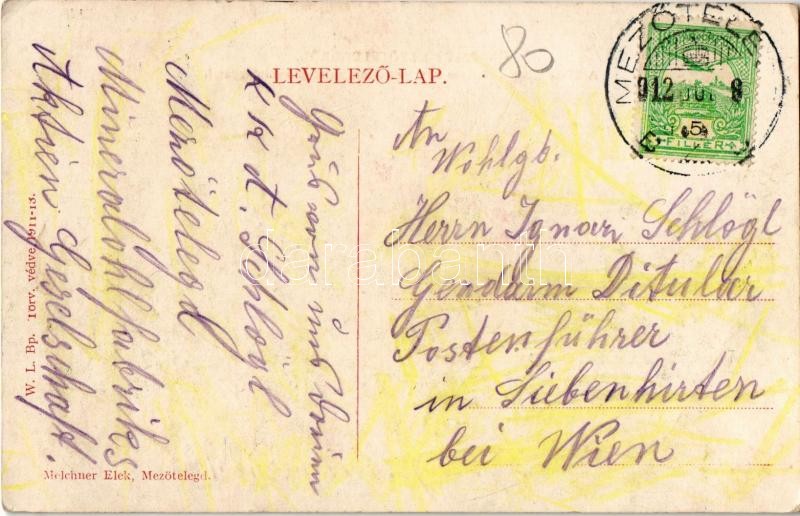 LEVELEZŐ-LAP.
80
MEZŐTELE
912
8
5
FILLÉR
An
Wohlgb.
Herrn Ignaz Schlögl
Gendarm Ditular
Postenführer
in Siebenhirten
bei Wien
Gruß von uns
A. Schlögl
Mezötelegd
Mineralöhlfabriks
Aktien Geselschaft.
W. L. Bp. Törv. védve. 1911-13.
Melchner Elek, Mezőtelegd.
darabanth